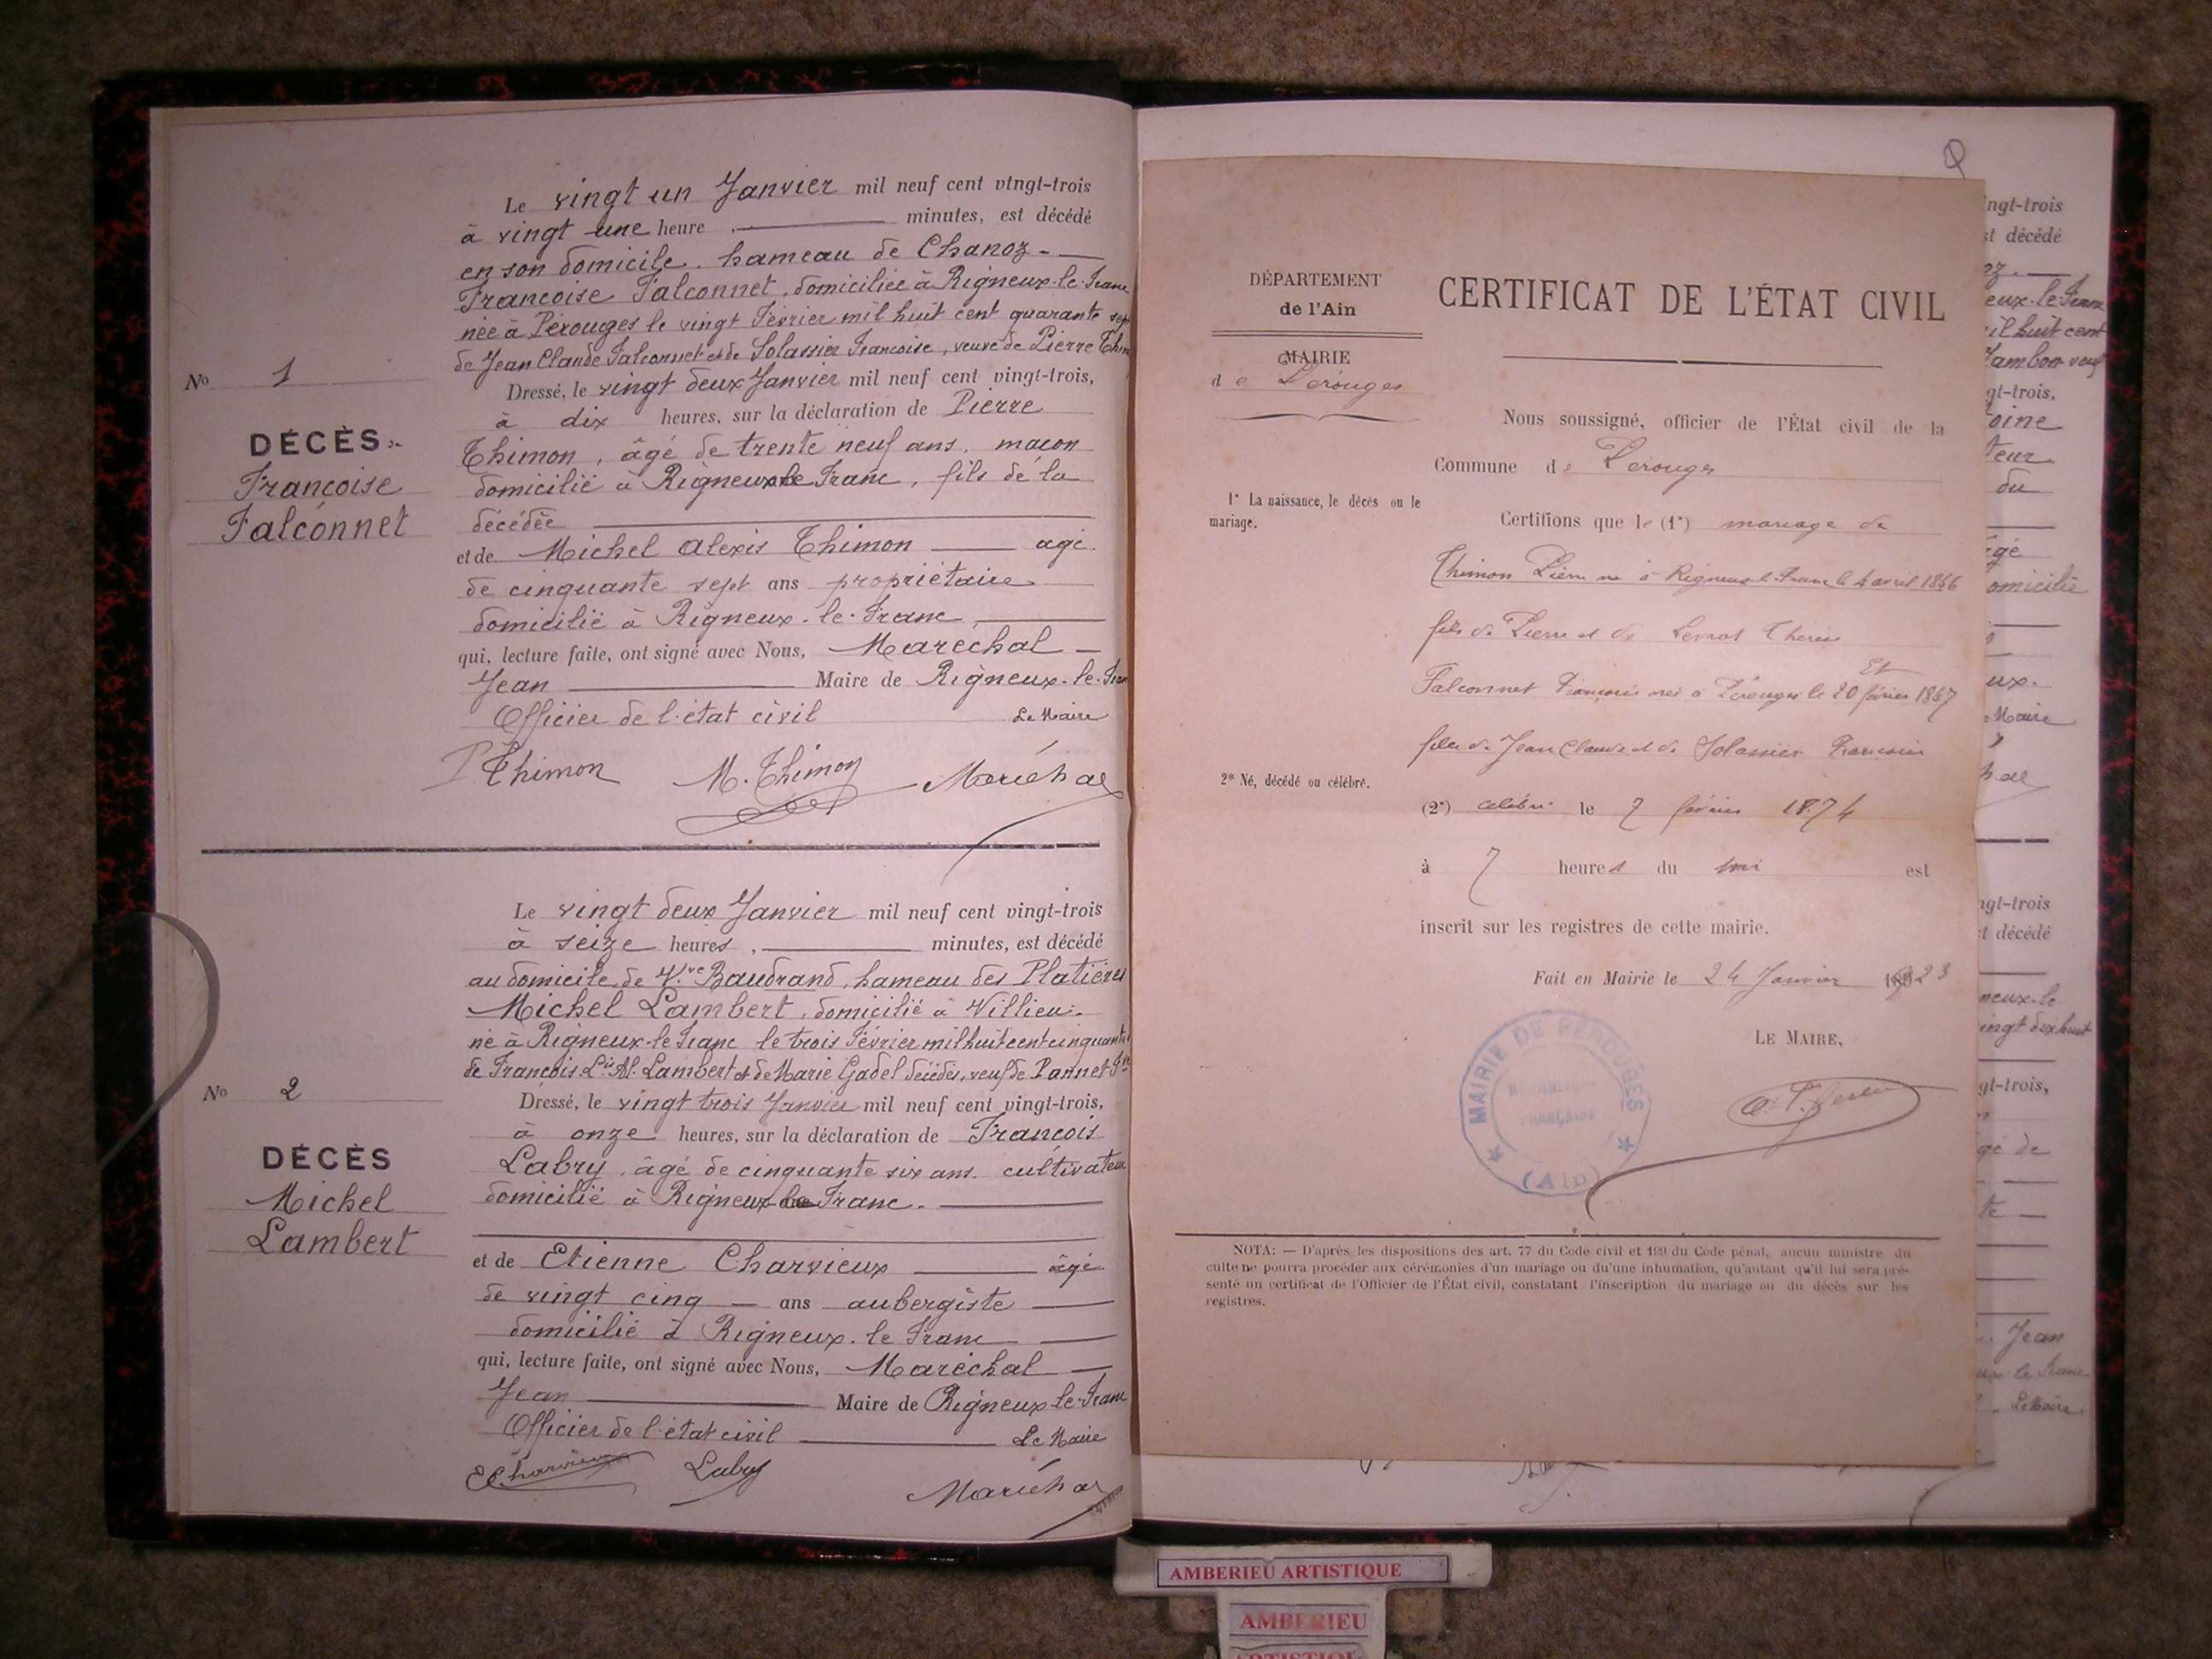 Le vingt un Janvier mil neuf cent vingt-trois
à vingt une heure, minutes, est décédé
en son domicile. hameau de Chanoz
Francoise Falconnet, domiciliée à Rigneux-le-Franc
née à Pérouges le vingt Février mil huit cent quarante sept
de Jean Claude Falconnet et de Solassier Francoise, veuve de Pierre Thim
No 1
Dressé, le vingt deux Janvier mil neuf cent vingt-trois,
à dix heures, sur la déclaration de Pierre
DÉCÈS
Thimon, âgé de trente neuf ans, macon
Francoise
domicilié à Rigneux le Franc, fils de la
Falconnet
décédée
et de Michel Alexis Thimon agé
de cinquante sept ans propriétaire
domicilié à Rigneux-le-Franc,
qui, lecture faite, ont signé avec Nous, Marechal
Jean Maire de Rigneux-le-Fran
Officier de l'état civil Le Maire
P Thimon M. Thimon Maréchal
Le vingt deux Janvier mil neuf cent vingt-trois
à seize heures, minutes, est décédé
au domicile de Vve Baudrand, hameau des Platières
Michel Lambert, domicilié à Villieu
né à Rigneux-le-Franc le trois Février mil huit cent cinquante
de François Lis Al. Lambert et de Marie Gadel décédés, veuf de Pannet
No 2
Dressé, le vingt trois Janvier mil neuf cent vingt-trois,
à onze heures, sur la déclaration de François
DÉCÈS
Labry, âgé de cinquante six ans. cultivateur
Michel
domicilié à Rigneux-le Franc.
Lambert
et de Etienne Charvieux âgé
de vingt cinq ans aubergiste
domicilié à Rigneux-le Franc
qui, lecture faite, ont signé avec Nous, Maréchal
Jean Maire de Rigneux-le-Franc
Officier de l'état civil Le Maire
E Charvieux Labry Maréchal
DÉPARTEMENT
de l'Ain
MAIRIE
de Pérouges
CERTIFICAT DE L'ÉTAT CIVIL
Nous soussigné, officier de l'État civil de la
Commune de Pérouges
1° La naissance, le décès ou le
mariage.
Certifions que le (1°) mariage de
Thimon Pierre né à Rigneux-le-Franc le 4 avril 1846
fils de Pierre et de Levrat Thérèse
Et
Falconnet Françoise née à Pérouges le 20 février 1847
fille de Jean Claude et de Solassier Françoise
2° Né, décédé ou célébré.
(2°) célébré le 7 février 1874
à 7 heures du soir est
inscrit sur les registres de cette mairie.
Fait en Mairie le 24 Janvier 1923
LE MAIRE,
MAIRIE DE PÉROUGES
RÉPUBLIQUE
FRANÇAISE
(Ain)
NOTA: — D'après les dispositions des art. 77 du Code civil et 199 du Code pénal, aucun ministre du
culte ne pourra procéder aux cérémonies d'un mariage ou d'une inhumation, qu'autant qu'il lui sera pré-
senté un certificat de l'Officier de l'État civil, constatant l'inscription du mariage ou du décès sur les
registres.
ngt-trois
st décédé
eux-le-Franc
il huit cent
Jambon veuf
gt-trois,
oine
teur
du
agé
omicilié
ux.
Maire
hal
ngt-trois
t décédé
neux-le
ingt dix huit
gt-trois,
gé de
te
Jean
ux-le Franc
Le Maire
AMBERIEU ARTISTIQUE
AMBERIEU
ARTISTIQUE